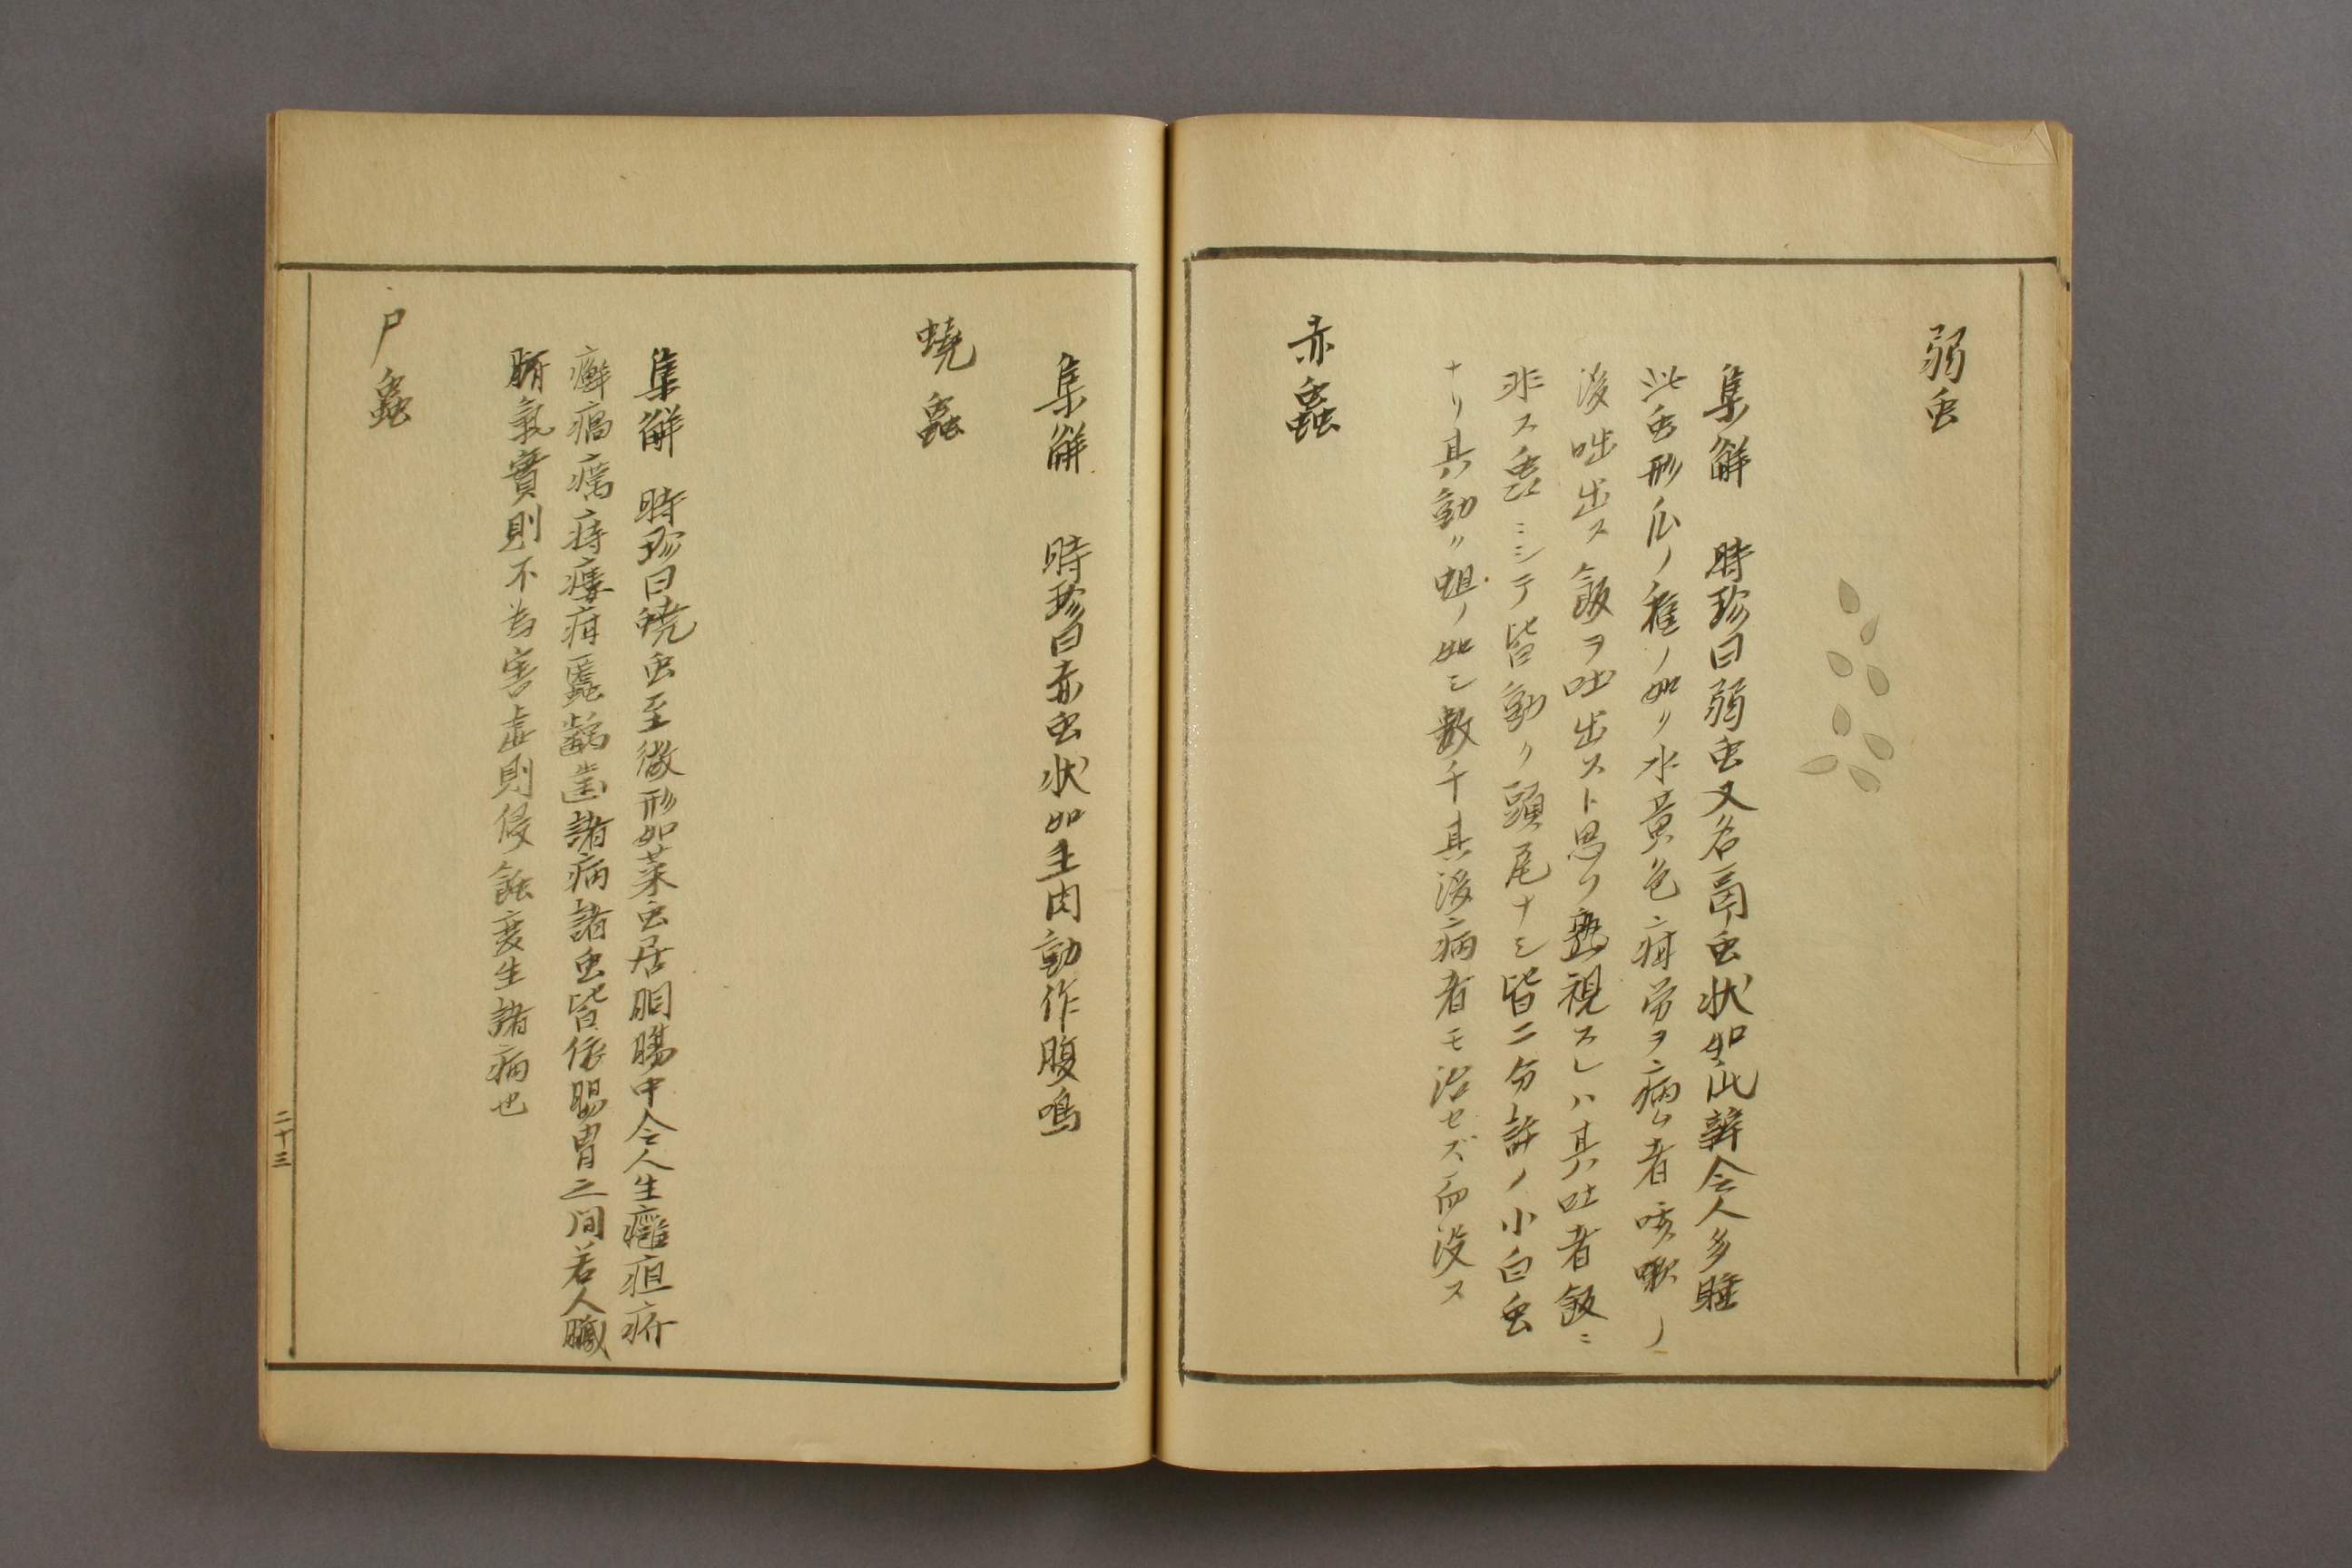 弱虫
集解　時珍曰弱虫又名鬲虫状如瓜辨令人多睡
此虫形瓜ノ種ノ如ク水黄色疳労ヲ病ム者咳嗽ノ
後吐出ス飯ヲ吐出スト思フ熟視スレハ其吐者飯ニ
非ス蟲ニシテ皆動ク頭尾ナシ皆二分許ノ小白虫
ナリ其動ク蛆ノ如シ数千其後病者モ治セズ而没ス
赤蟲
集解　時珍曰赤虫状如生肉動作腹鳴
蟯蟲
集解　時珍曰蟯虫至微形如菜虫居胴腸中令人生癰疽疥
癬瘑癘痔瘻疳䘌齲歯諸病諸虫皆依腸胃之间若人臓
腑氣實則不為害虚則侵蝕変生諸病也
尸蟲
二十三